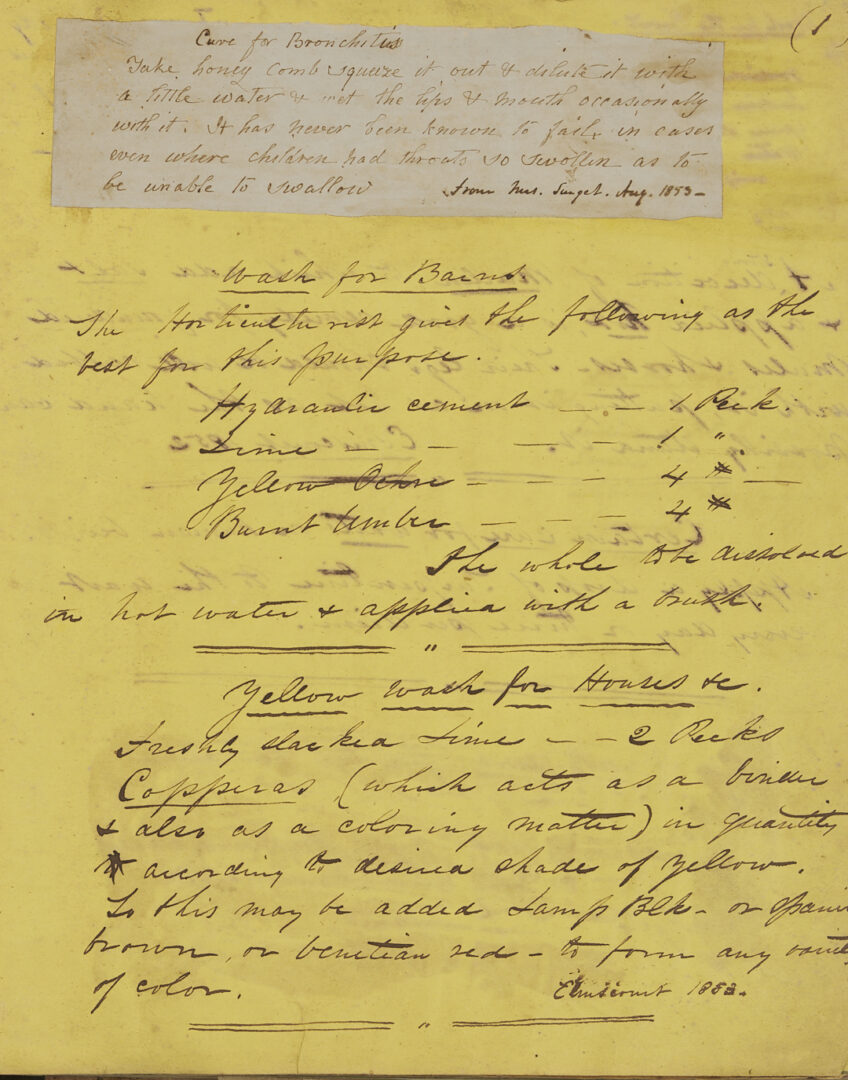 (1)
Cure for Bronchitis
Take honey comb squeze it out & dilute it with
a little water & wet the lips & mouth occasionally
with it. It has never been known to fail, in cases
even where children had throats so swollen as to
be unable to swallow
From Mrs. Surget. Aug. 1853 –
Wash for Barns
The Horticulturist gives the following as the
best for this purpose.
Hydraulic cement — – 1 Peck.
Lime – – — — 1 ".
Yellow Ochre – – – 4 " —
Burnt Umber – – – 4 "
The whole to be dissolved
in hot water & applied with a brush.
"
Yellow wash for Houses &c.
Freshly slacked Lime – – 2 Pecks
Copperas (which acts as a binder
& also as a coloring matter) in quantity
according to desired shade of yellow.
To this may be added Lamp Blk – or Spani
brown, or venetian red – to form any
of color.
Elmscourt 1853.
"